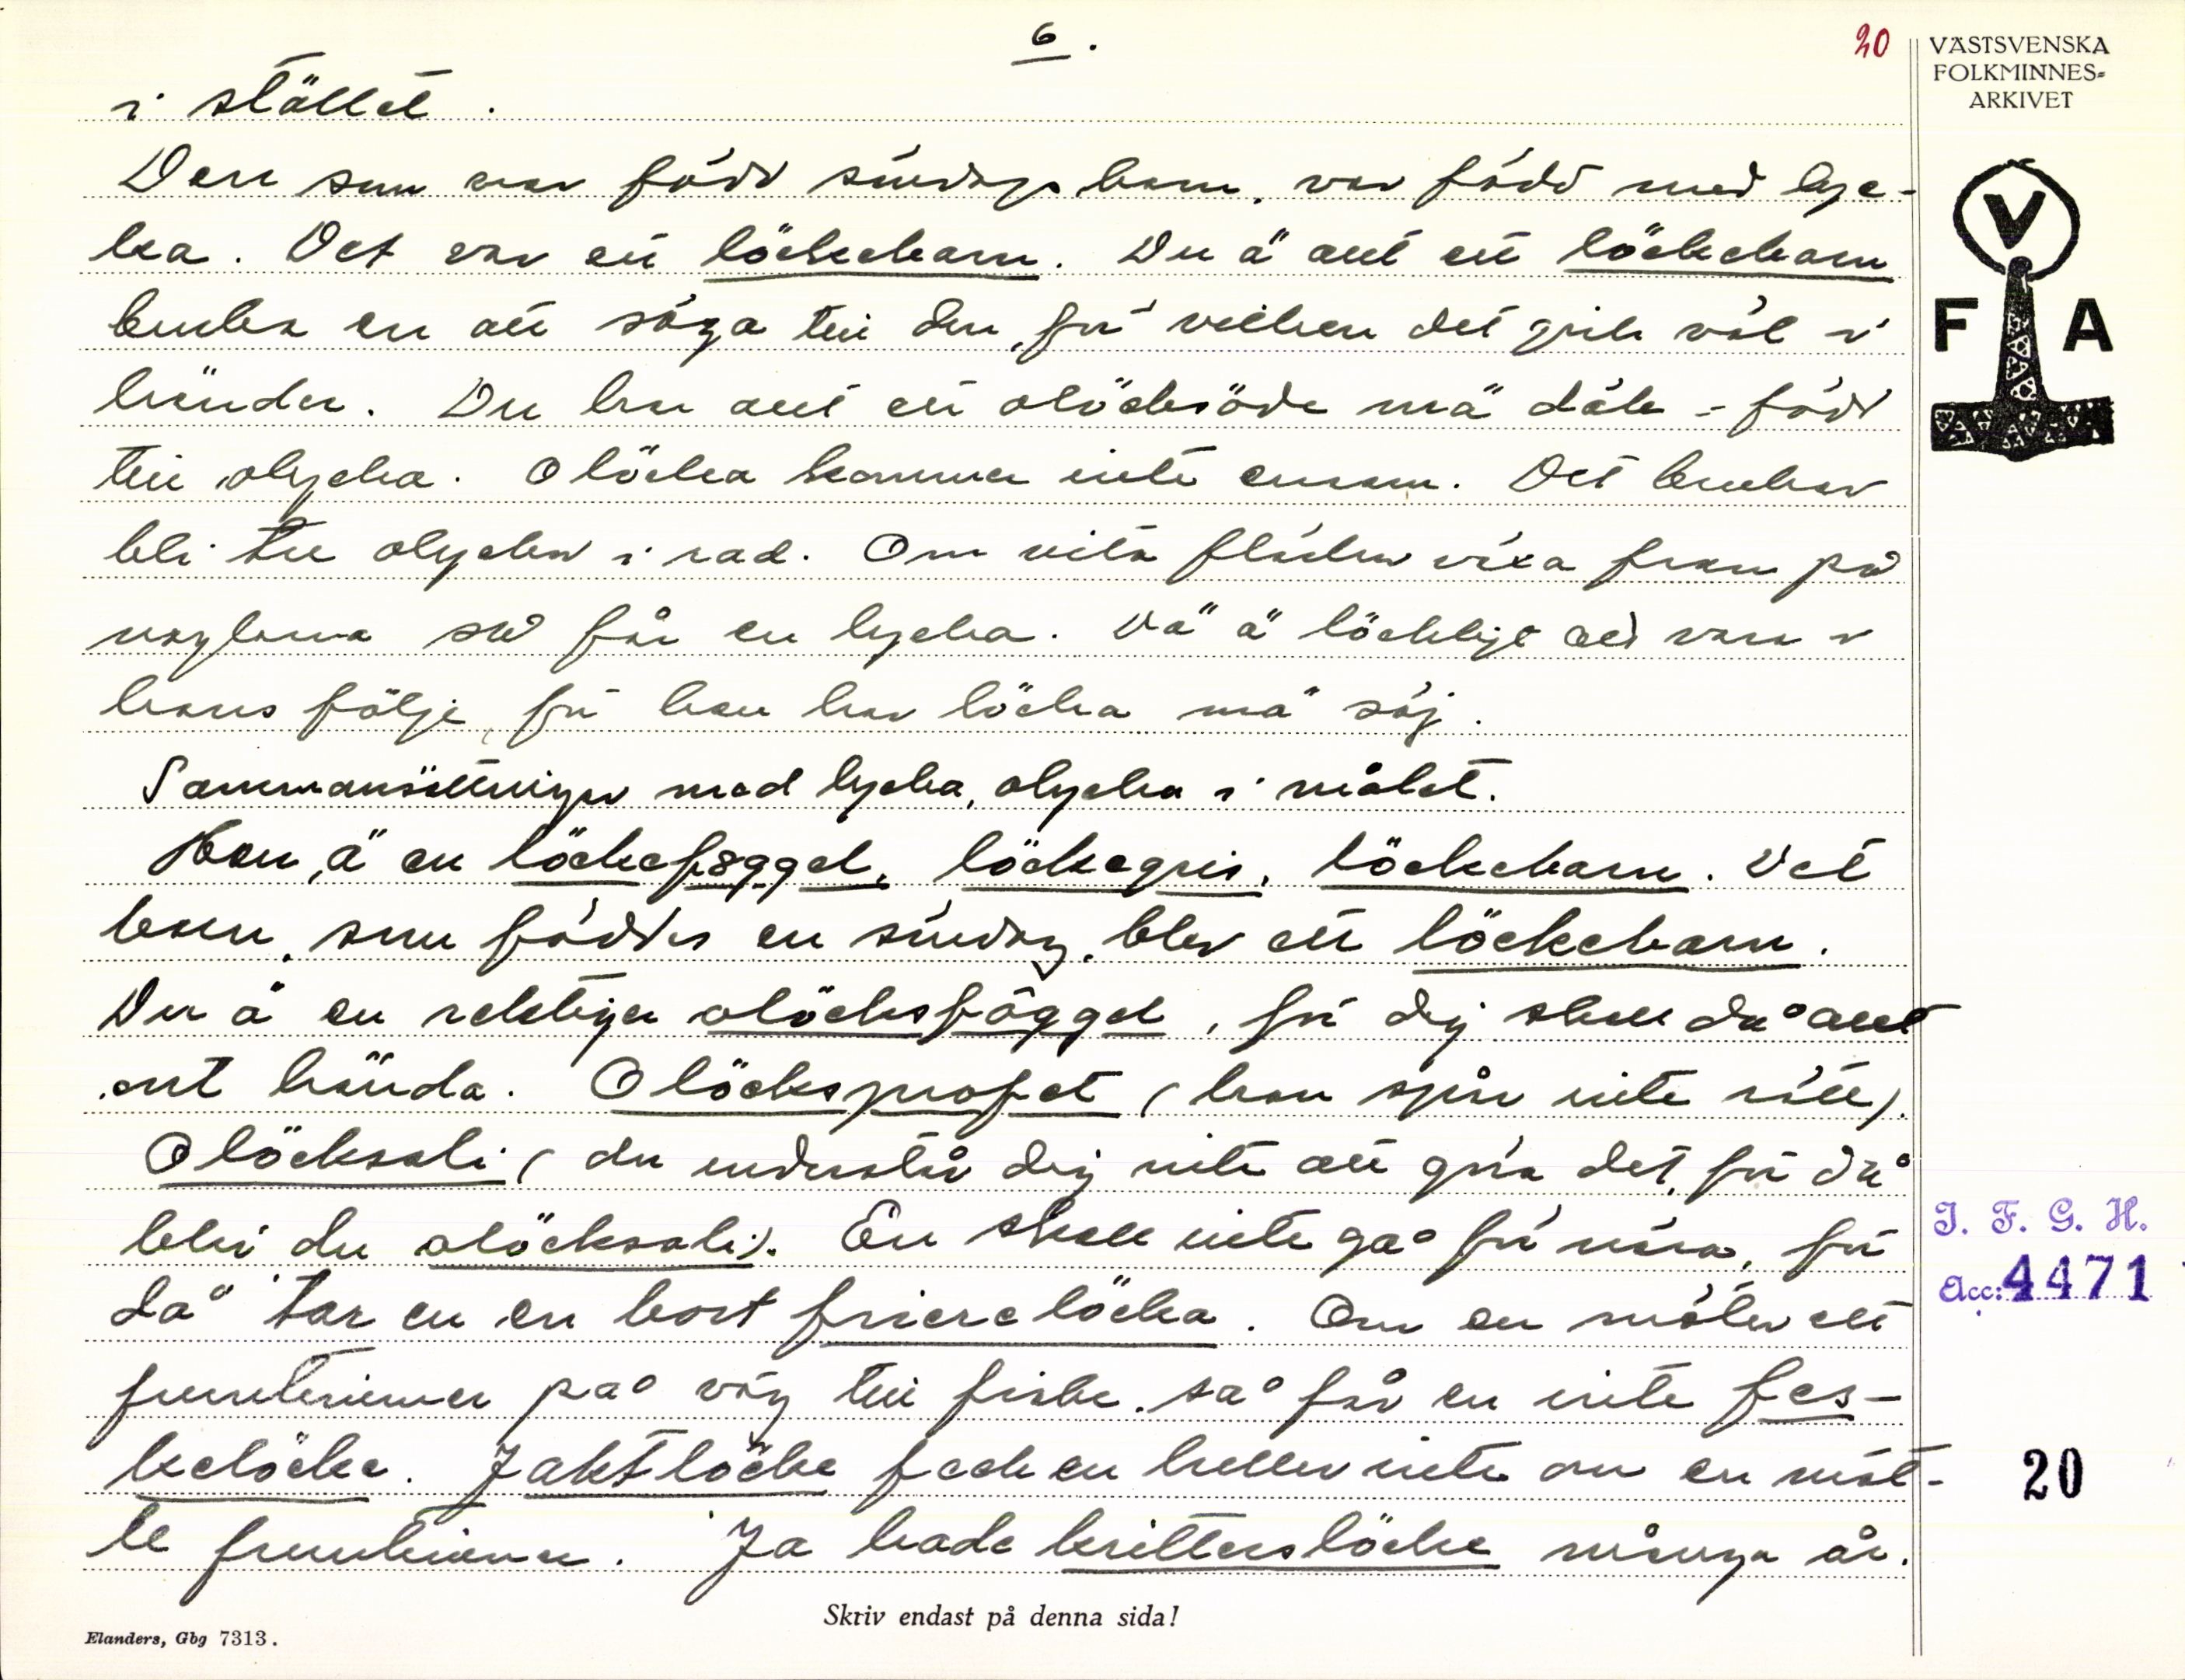 6.
20
VÄSTSVENSKA
FOLKMINNES=
ARKIVET
i stället.
Den som var född söndagsbarn, var född med lyc-
ka. Det var ett löckebarn. Du ä allt ett löckebarn
bruka en att säga till den, för vilken det gick väl i
händer. Du har allt ett olöcksöde mä däk - född
till olycka. Olöcka kommer inte ensam. Det brukar
bli tre olyckor i rad. Om vita fläckar växa fram på
naglarna så får en lycka. Dä ä löckligt att vara i
hans följe, för han har löcka mä säj.
Sammansättningar med lycka, olycka i målet.
Han ä en löckeföggel, löckegris, löckebarn. Det
barn, som föddes en söndag, blev ett löckebarn.
Du ä en rektiger olöcksföggel, för dej skall då allt
ont hända. Olöcksprofet (han spår inte rätt).
Olöcksali (du understår dej inte att göra det, för då
blir du olöcksali). En skall inte gå för nära, för
då tar en en bort friarelöcka. Om en möter ett
fruntimmer på väg till fiske, så får en inte fes-
kelöcke. Jaktlöcke feck en heller inte om en möt-
te fruntimmer. Ja hade kritterslöcke många år.
V
F A
I. F. G. H.
Acc: 4471
20
Skriv endast på denna sida!
Elanders, Gbg 7313.